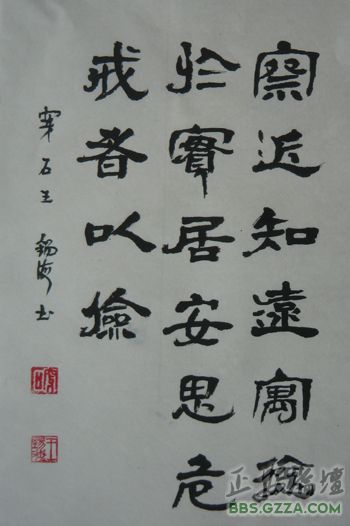 察近知遠寓
於實居安思危
戒奢以儉
石王錫海书
BBS.GZZA.COM